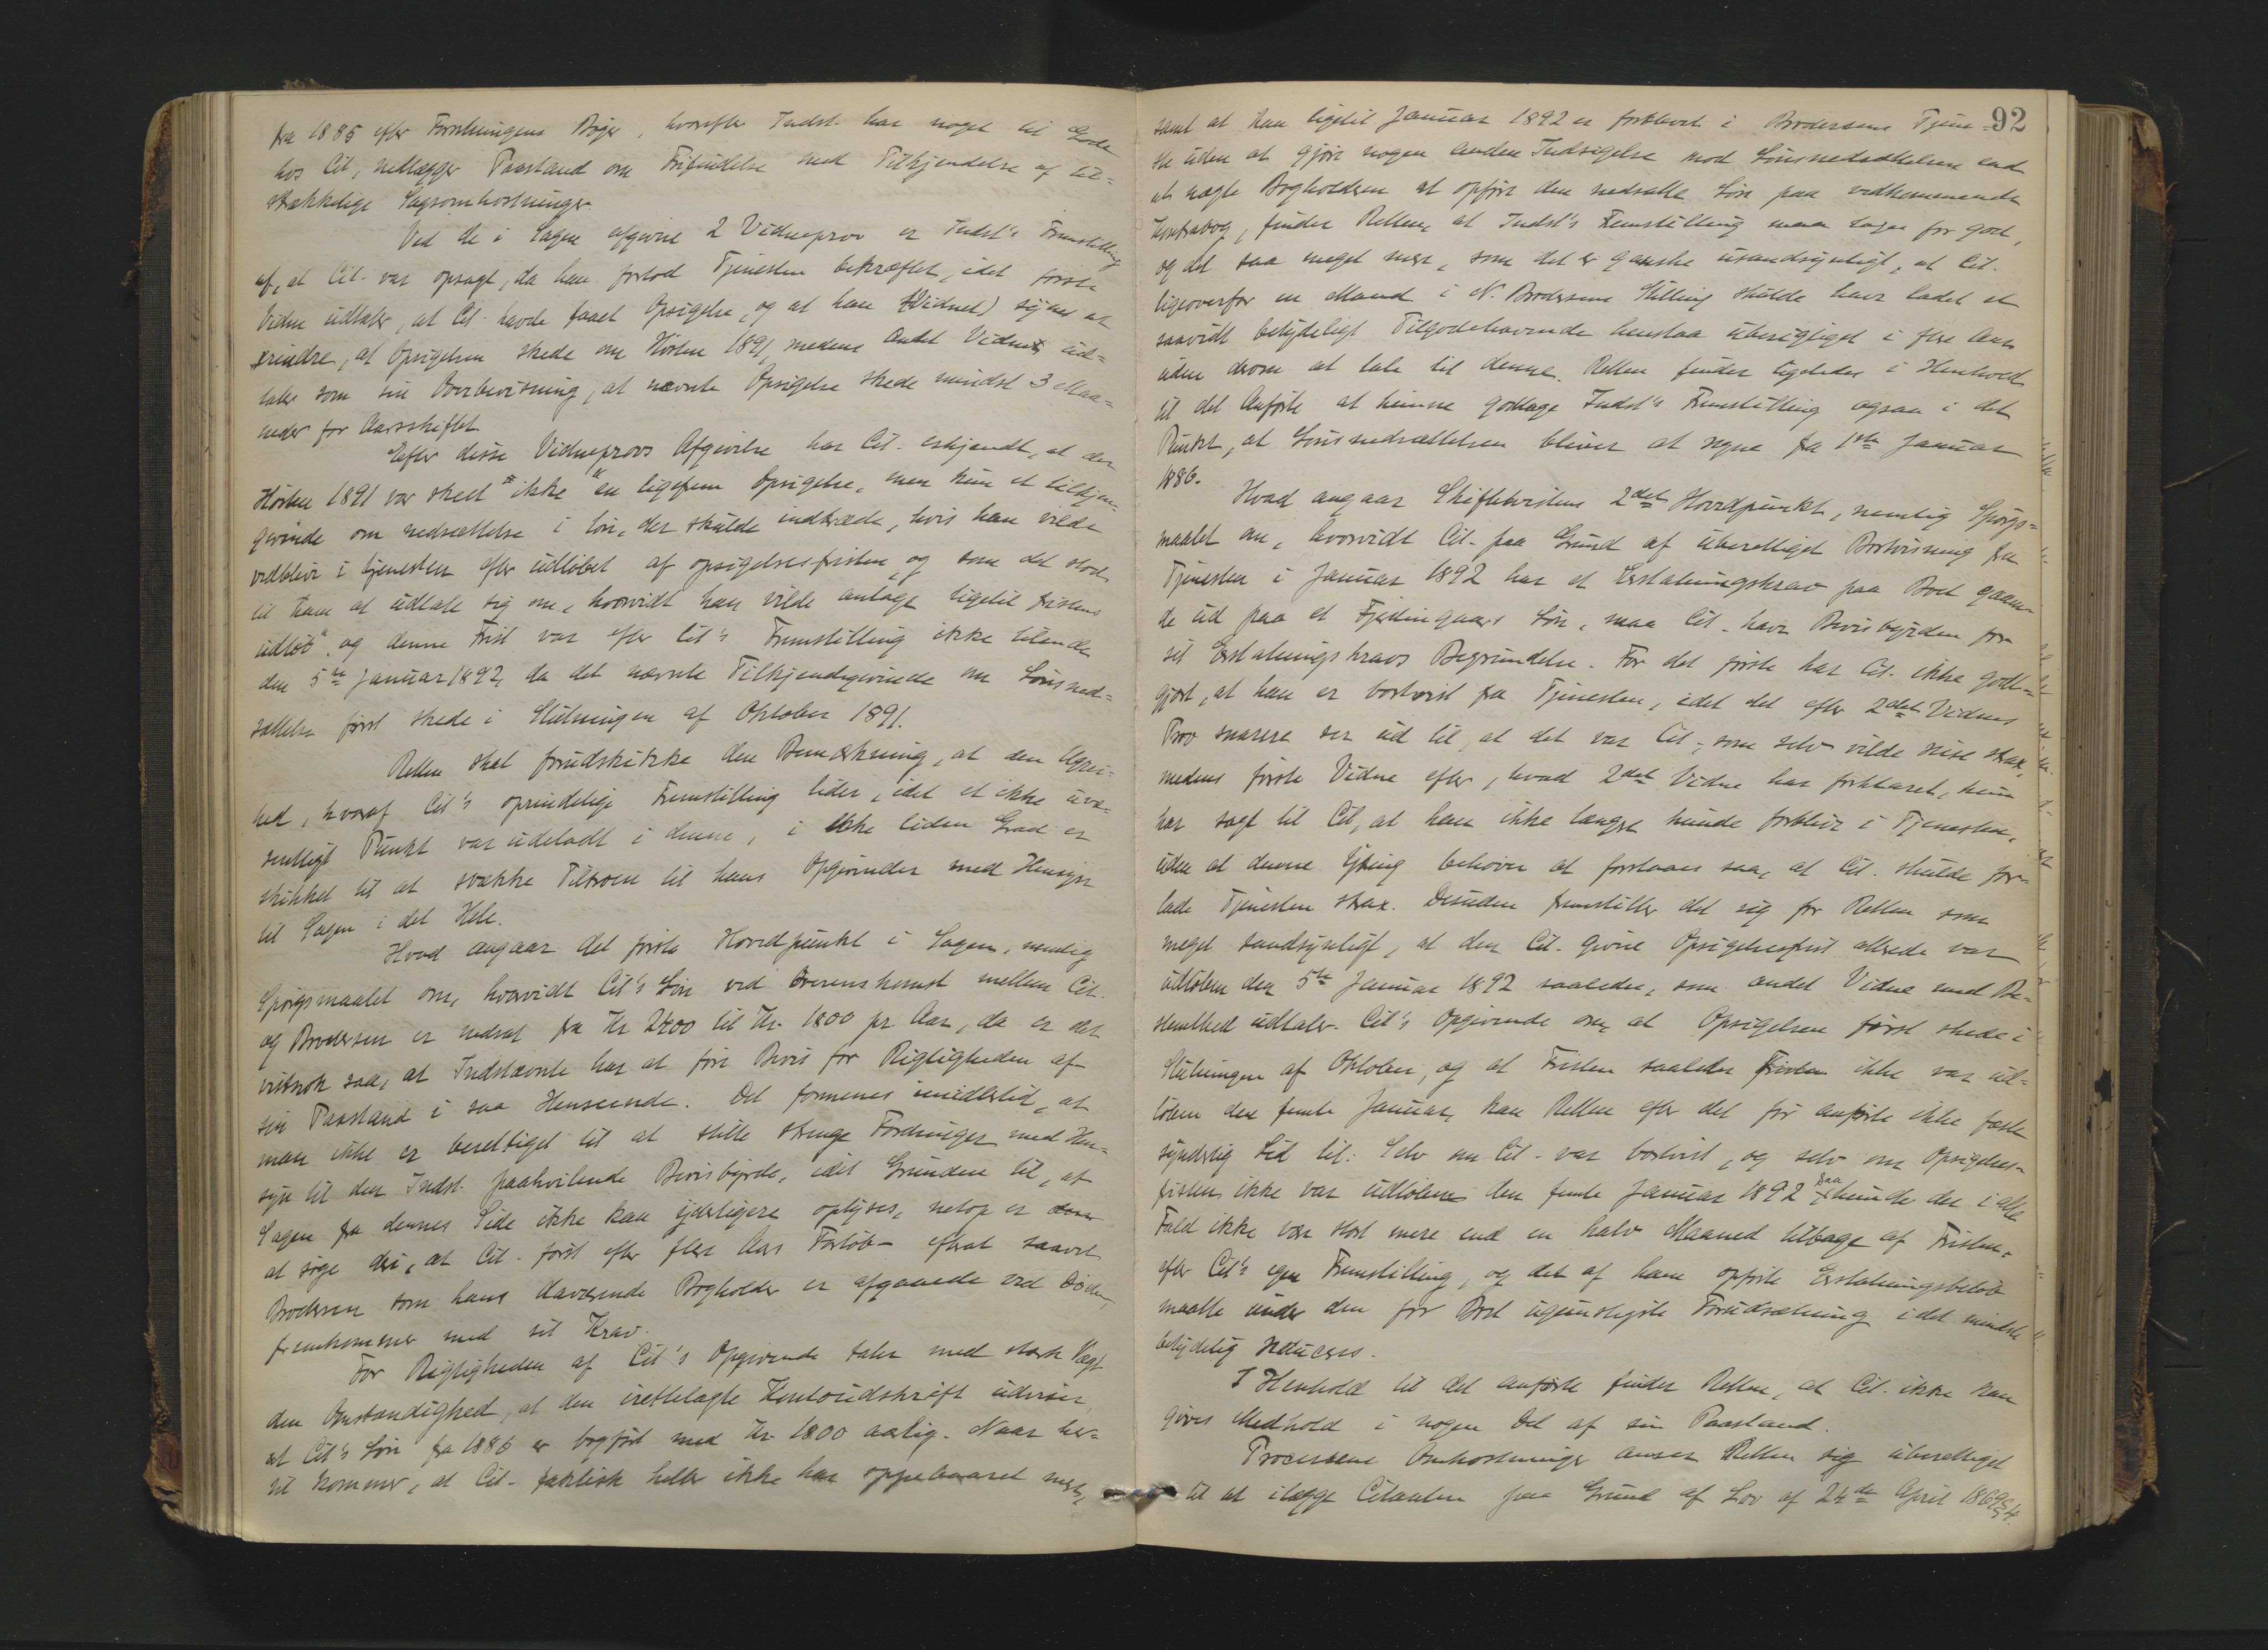 fra 1885 efter Forretningens Bøger, hvorefter Indst. har noget til Gode
hos Cit, nedlægger Paastand om Frifindelse med Tilkjendelse af til-
strækkelige Sagsomkostninger.
Ved de i Sagen afgivne 2 Vidneprov er Indst's Fremstilling
af, at Cit. var opsagt, da han forlod Tjenesten bekræftet, idet første
Vidne udtaler, at Cit. havde faaet Opsigelse, og at han (Vidnet) synes at
erindre, at Opsigelsen skede om Høsten 1891, medens andet Vidne ud-
taler som sin Overbevisning, at nævnte Opsigelse skede mindst 3 Maa-
neder før Aarsskiftet
Efter disse Vidneprovs Afgivelse har Cit. erkjendt, at der
Høsten 1891 var skeet "ikke en ligefrem Opsigelse, men kun et tilkjende-
givende om nedsættelse i løn, der skulde indtræde, hvis han vilde
vedblive i tjenesten efter udløbet af opsigelsesfristen og som det stod
til ham at udtale sig om, hvorvidt han vilde antage ligetil fristens
udløb", og denne Frist var efter Cit's Fremstilling ikke tilende
den 5te Januar 1892, da det nævnte Tilkjendegivende om Lønsned-
sættelse først skede i Slutningen af Oktober 1891.
Retten skal forudskikke den Bemærkning, at den Ugrei-
hed, hvoraf Cit's oprindelige Fremstilling lider, idet et ikke uvæ-
sentligt Punkt var udeladt i denne, i ikke liden Grad er
skikket til at svække Tiltroen til hans Opgivender med Hensyn
til Sagen i det Hele.
Hvad angaar det første Hovedpunkt i Sagen, nemlig
Spørgsmaalet om, hvorvidt Cit's Løn ved Overenskomst mellem Cit.
og Brodersen er nedsat fra Kr 2400 til Kr. 1800 pr. Aar, da er det
vistnok saa, at Indstævnte har at føre Bevis for Rigtigheden af
sin Paastand i saa Henseende. Det formenes imidlertid, at
man ikke er berettiget til at stille strenge Fordringer med Hen-
syn til den Indst. paahvilende Bevisbyrde, idet Grunden til, at
Sagen fra dennes Side ikke kan yderligere oplyses, netop er
at søge deri, at Cit. først efter flere Aars Forløb - efterat saavel
Brodersen som hans daværende Bogholder er afgaaede ved Døden,
fremkommer med sit Krav.
For Rigtigheden af Cit's Opgivende taler med stærk Vægt
den Omstændighed, at den irettelagte Kontoudskrift udviser,
at Cit's Løn fra 1886 er bogført med Kr. 1800 aarlig. Naar her-
til kommer, at Cit. faktisk heller ikke har oppebaaret mere,
92
samt at han ligetil Januar 1892 er forblevet i Brodersens Tjene-
ste uden at gjøre nogen anden Indsigelse mod Lønsnedsættelsen end
at nægte Bogholderen at opføre den nedsatte Løn paa vedkommende
Kontrabog, finder Retten, at Indst's Fremstilling maa tages for god,
og det saa meget mere, som det er ganske usandsynligt, at Cit.
ligeoverfor en Mand i N. Brodersens Stilling skulde have ladet et
saavidt betydeligt Tilgodehavende henstaa uberigtiget i flere Aar
uden derom at tale til denne. Retten finder ligeledes i Henhold
til det Anførte at kunne godtage Indst's Fremstilling ogsaa i det
Punkt, at Lønsnedsættelsen bliver at regne fra 1ste Januar
1886.
Hvad angaar Skifteretstens 2det Hovedpunkt, nemlig Spørgs-
maalet om, hvorvidt Cit. paa Grund af uberettiget Bortvisning fra
Tjenesten i Januar 1892 har et Erstatningskrav paa Boet gaaen-
de ud paa et Fjerdingaars Løn, maa Cit. have Bevisbyrden for
sit Erstatningskravs Begrundelse. For det første har Cit. ikke godt-
gjort, at han er bortvist fra Tjenesten, idet det efter 2det Vidnes
Prov snarere ser ud til, at det var Cit., som selv vilde reise strax,
medens første Vidne efter, hvad 2det Vidne har forklaret, kun
har sagt til Cit, at han ikke længere kunde forblive i Tjenesten,
uden at denne Ytring behøver at forstaaes saa, at Cit. skulde for-
lade Tjenesten strax. Desuden fremstiller det sig for Retten som
meget sandsynligt, at den Cit. givne Opsigelsesfrist allerede var
udløben den 5te Januar 1892 saaledes, som andet Vidne med Be-
stemthed udtaler. Cit's Opgivende om, at Opsigelsen først skede i
Slutningen af Oktober, og at Fristen saaledes ikke var ud-
løben den femte Januar, kan Retten efter det før anførte ikke fæste
synderlig Lid til. Selv om Cit. var bortvist, og selv om Opsigelses-
fristen ikke var udløben den femte Januar 1892 saa kunde der i alle
Fald ikke være stort mere end en halv Maaned tilbage af Fristen,
efter Cit's egen Fremstilling, og det af ham opførte Erstatningsbeløb
maatte under den for Boet ugunstigste Forudsætning idet mindste
betydelig reduceres.
I Henhold til det anførte finder Retten, at Cit. ikke kan
gives Medhold i nogen Del af sin Paastand.
Processens Omkostninger anser Retten sig uberettiget
til at ilægge Citanten paa Grund af Lov af 24de April 1869 § 4.